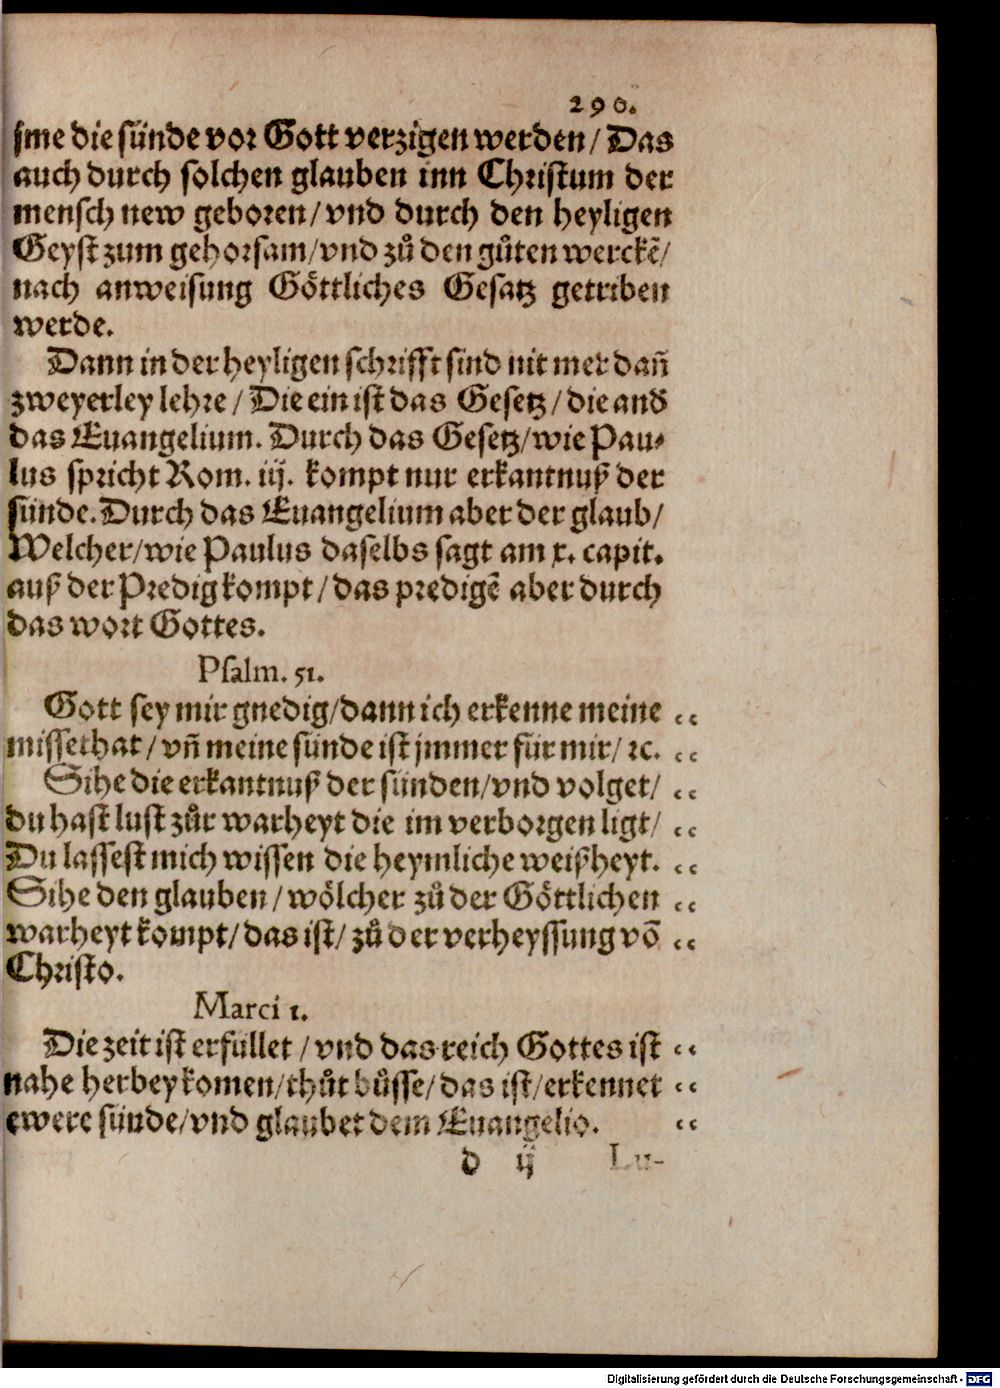 290.
jme die sünde vor Gott verzigen werden / Das
auch durch solchen glauben inn Christum der
mensch new geboren / vnd durch den heyligen
Geyst zum gehorsam / vnd zů den gůten werckẽ /
nach anweisung Göttliches Gesatz getriben
werde.
Dann in der heyligen schrifft sind nit mer dañ
zweyerley lehre / Die ein ist das Gesetz / die and̃
das Euangelium. Durch das Gesetz / wie Pau⸗
lus spricht Rom. iij. kompt nur erkantnuß der
sünde. Durch das Euangelium aber der glaub /
Welcher / wie Paulus daselbs sagt am x. capit.
auß der Predig kompt / das predigẽ aber durch
das wort Gottes.
Psalm. 51.
Gott sey mir gnedig / dann ich erkenne meine „
missethat / vñ meine sünde ist jmmer für mir / ꝛc. „
Sihe die erkantnuß der sünden / vnd volget / „
du hast lust zůr warheyt die im verborgen ligt / „
Du lassest mich wissen die heymliche weißheyt. „
Sihe den glauben / wölcher zů der Göttlichen „
warheyt kompt / das ist / zů der verheyssung võ „
Christo.
Marci 1.
Die zeit ist erfüllet / vnd das reich Gottes ist „
nahe herbey komen / thůt bůsse / das ist / erkennet „
ewere sünde / vnd glaubet dem Euangelio. „
d ij Lu-
Digitalisierung gefördert durch die Deutsche Forschungsgemeinschaft - DFG